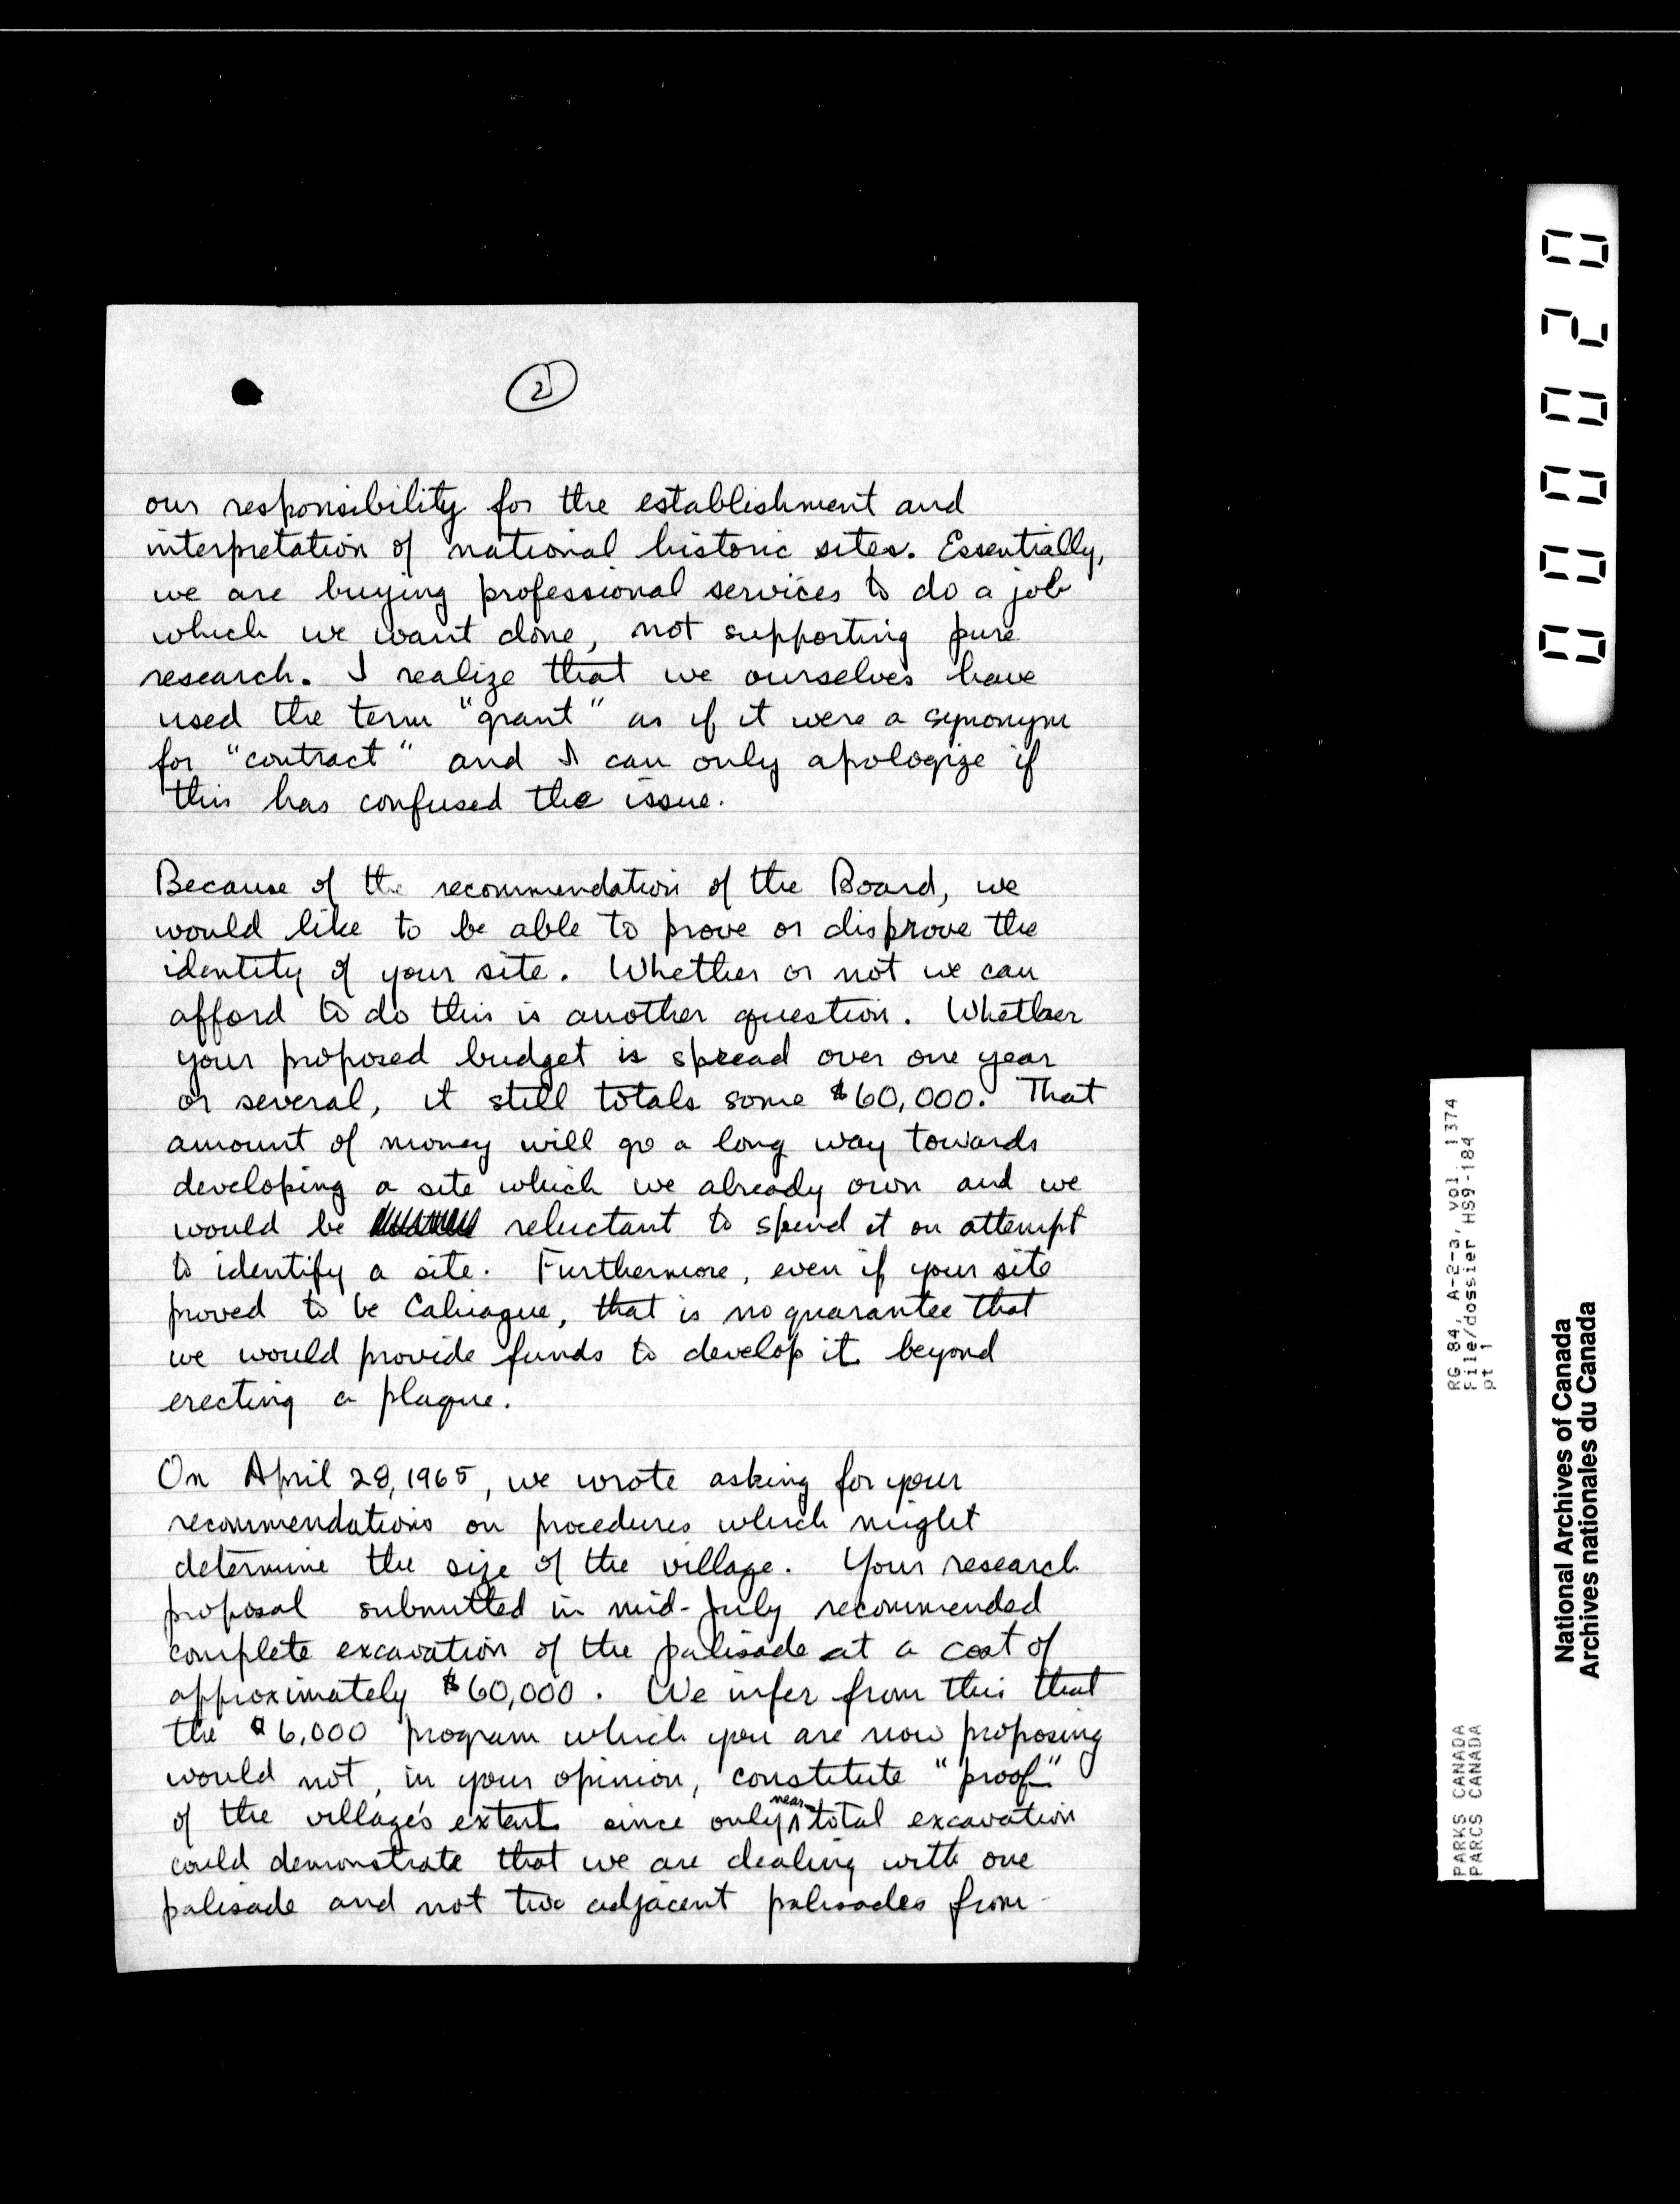 2
our responsibility for the establishment and
interpretation of national historic sites. Essentially,
we are buying professional services to do a job
which we want done, not supporting pure
research. I realize that we ourselves have
used the term "grant" as if it were a synonym
for "contract" and I can only apologize if
this has confused the issue.
Because of the recommendation of the Board, we
would like to be able to prove or disprove the
identity of your site. Whether or not we can
afford to do this is another question. Whether
your proposed budget is spread over one year
or several, it still totals some $60,000. That
amount of money will go a long way towards
developing a site which we already own and we
would be reluctant to spend it on attempt
to identify a site. Furthermore, even if your site
proved to be Cahiague, that is no guarantee that
we would provide funds to develop it beyond
erecting a plaque.
On April 28, 1965, we wrote asking for your
recommendations on procedures which might
determine the size of the village. Your research
proposal submitted in mid-July recommended
complete excavation of the palisade at a cost of
approximately $60,000. We infer from this that
the $6,000 program which you are now proposing
would not, in your opinion, constitute "proof"
of the village's extent since only near total excavation
could demonstrate that we are dealing with one
palisade and not two adjacent palisades from
000020
RG 84, A-2-a, vol. 1374
File/dossier HS9-184
pt 1
PARKS CANADA
PARCS CANADA
National Archives of Canada
Archives nationales du Canada